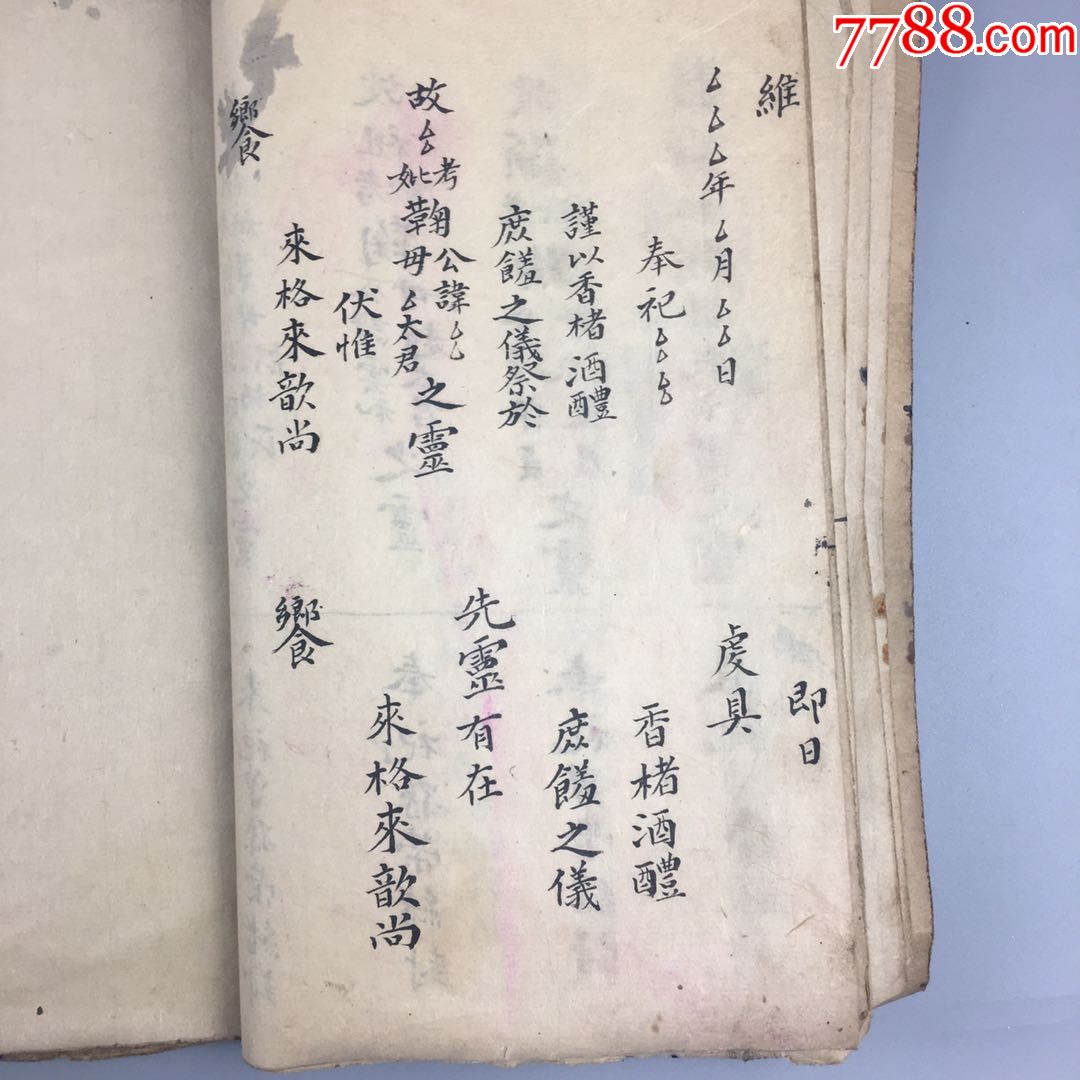 7788.com
維
厶厶厶年厶月厶厶日
奉祀厶厶厶
謹以香楮酒醴
庶饈之儀祭於
故厶
考鞠公諱厶厶
妣鞠母厶太君
之靈
伏惟
來格來歆尚
饗
即日
虔具
香楮酒醴
庶饈之儀
先靈有在
來格來歆尚
饗